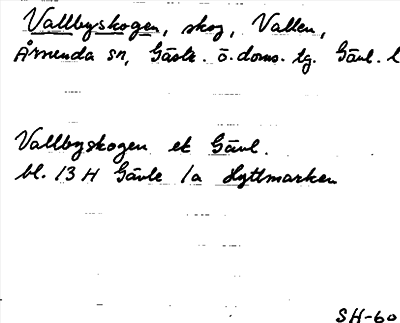 Vallbyskogen, skog, Vallen,
Årsunda sn, Gästr. ö. doms. tg. Gävl. l
Vallbyskogen ek Gävl.
bl. 13 H Gävle 1a Hyttmarken
SH-60